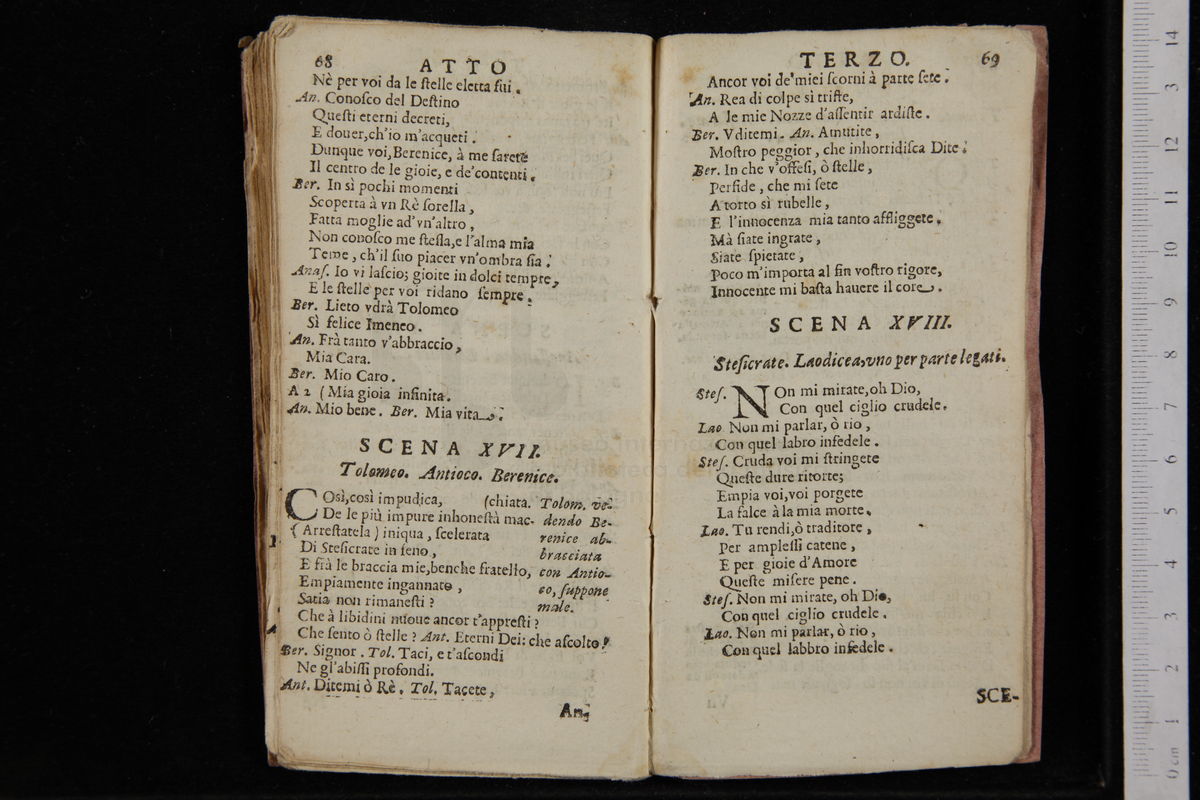 68 ATTO
Nè per voi da le ſtelle eletta fui.
An. Conoſco del Deſtino
Queſti eterni decreti,
E douer, ch'io m'acqueti.
Dunque voi, Berenice, à me ſarete
Il centro de le gioie, e de'contenti.
Ber. In sì pochi momenti
Scoperta à vn Rè ſorella,
Fatta moglie ad'vn'altro,
Non conoſco me ſteſſa, e l'alma mia
Teme, ch'il ſuo piacer vn'ombra ſia.
Anaſ. Io vi laſcio; gioite in dolci tempre,
E le ſtelle per voi ridano ſempre.
Ber. Lieto vdrà Tolomeo
Sì felice Imeneo.
An. Frà tanto v'abbraccio,
Mia Cara.
Ber. Mio Caro.
A 2 (Mia gioia infinita.
An. Mio bene. Ber. Mia vita.
SCENA XVII.
Tolomeo. Antioco. Berenice.
COsì, così impudica, (chiata.
De le più impure inhoneſtà mac-
(Arreſtatela) iniqua, ſcelerata
Di Steſicrate in ſeno,
E frà le braccia mie, benche fratello,
Empiamente ingannato,
Satia non rimaneſti?
Che à libidini nuoue ancor t'appreſti?
Che ſento ò ſtelle? Ant. Eterni Dei: che aſcolto!
Ber. Signor. Tol. Taci, e t'aſcondi
Ne gl'abiſſi profondi.
Ant. Ditemi ò Rè. Tol. Tacete,
Tolom. ve-
dendo Be-
renice ab-
bracciata
con Antio-
co, ſuppone
male.
An-
TERZO. 69
Ancor voi de'miei ſcorni à parte ſete.
An. Rea di colpe sì triſte,
A le mie Nozze d'aſſentir ardiſte.
Ber. Vditemi. An. Amutite,
Moſtro peggior, che inhorridiſca Dite.
Ber. In che v'offeſi, ò ſtelle,
Perfide, che mi ſete
A torto sì rubelle,
E l'innocenza mia tanto affliggete.
Mà ſiate ingrate,
Siate ſpietate,
Poco m'importa al fin voſtro rigore,
Innocente mi baſta hauere il core.
SCENA XVIII.
Steſicrate. Laodicea, vno per parte legati.
Steſ. NOn mi mirate, oh Dio,
Con quel ciglio crudele.
Lao Non mi parlar, ò rio,
Con quel labro infedele.
Steſ. Cruda voi mi ſtringete
Queſte dure ritorte;
Empia voi, voi porgete
La falce à la mia morte.
Lao. Tu rendi, ò traditore,
Per ampleſſi catene,
E per gioie d'Amore
Queſte miſere pene.
Steſ. Non mi mirate, oh Dio,
Con quel ciglio crudele.
Lao. Non mi parlar, ò rio,
Con quel labbro infedele.
SCE-